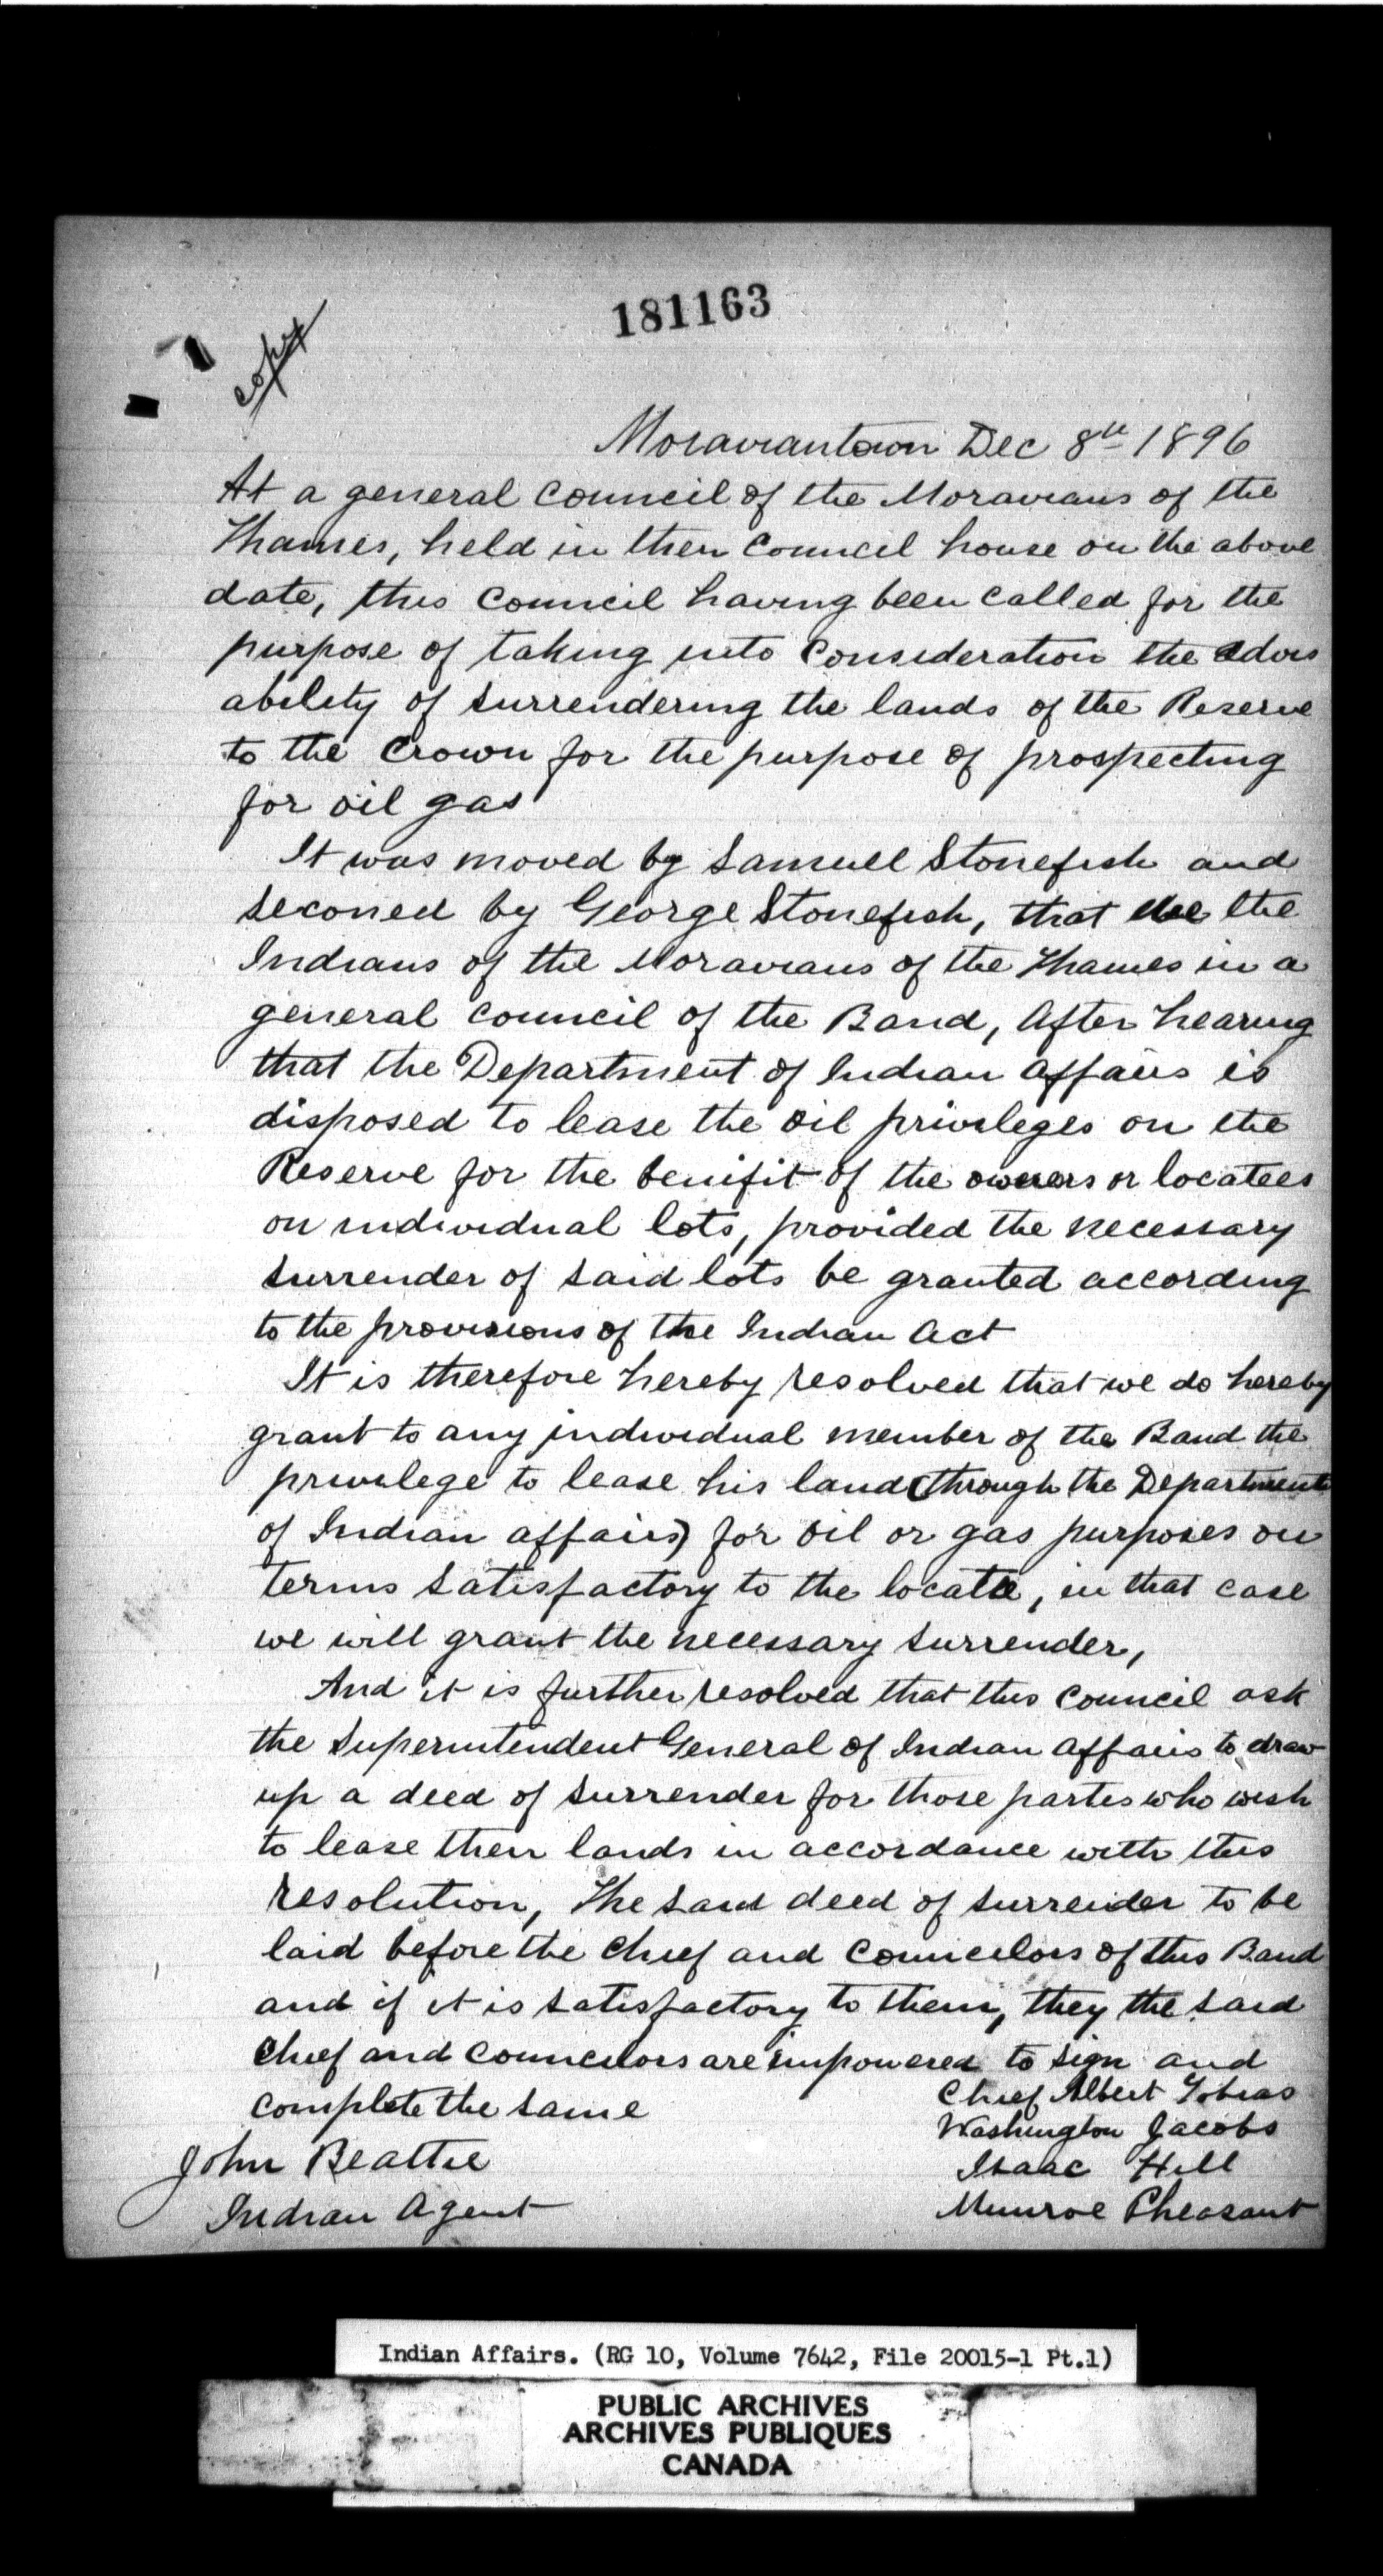 181163
copy
Moraviantown Dec 8th 1896
At a general Council of the Moravians of the
Thames, held in their Council house on the above
date, this Council having been called for the
purpose of taking into Consideration the advis
ability of surrendering the lands of the Reserve
to the Crown for the purpose of prospecting
for oil gas
It was moved by Samuel Stonefish and
seconed by George Stonefish, that we the
Indians of the Moravians of the Thames in a
general Council of the Band, After hearing
that the Department of Indian Affairs is
disposed to lease the oil privileges on the
Reserve for the benifit of the owners or locatees
on individual lots, provided the necessary
surrender of said lots be granted according
to the provisions of the Indian Act
It is therefore hereby resolved that we do hereby
grant to any individual member of the Band the
privilege to lease his land (through the Department
of Indian affairs) for oil or gas purposes on
terms satisfactory to the locatee, in that case
we will grant the necessary surrender,
And it is further resolved that this Council ask
the Superintendent General of Indian Affairs to draw
up a deed of surrender for those parties who wish
to lease their lands in accordance with this
resolution, The said deed of surrender to be
laid before the Chief and Councilors of this Band
and if it is satisfactory to them, they the said
Chief and Councilors are impowered to sign and
complete the same
Chief Albert Tobias
Washington Jacobs
John Beattie
Isaac Hill
Indian Agent
Munroe Pheasant
Indian Affairs. (RG 10, Volume 7642, File 20015-1 Pt.1)
PUBLIC ARCHIVES
ARCHIVES PUBLIQUES
CANADA